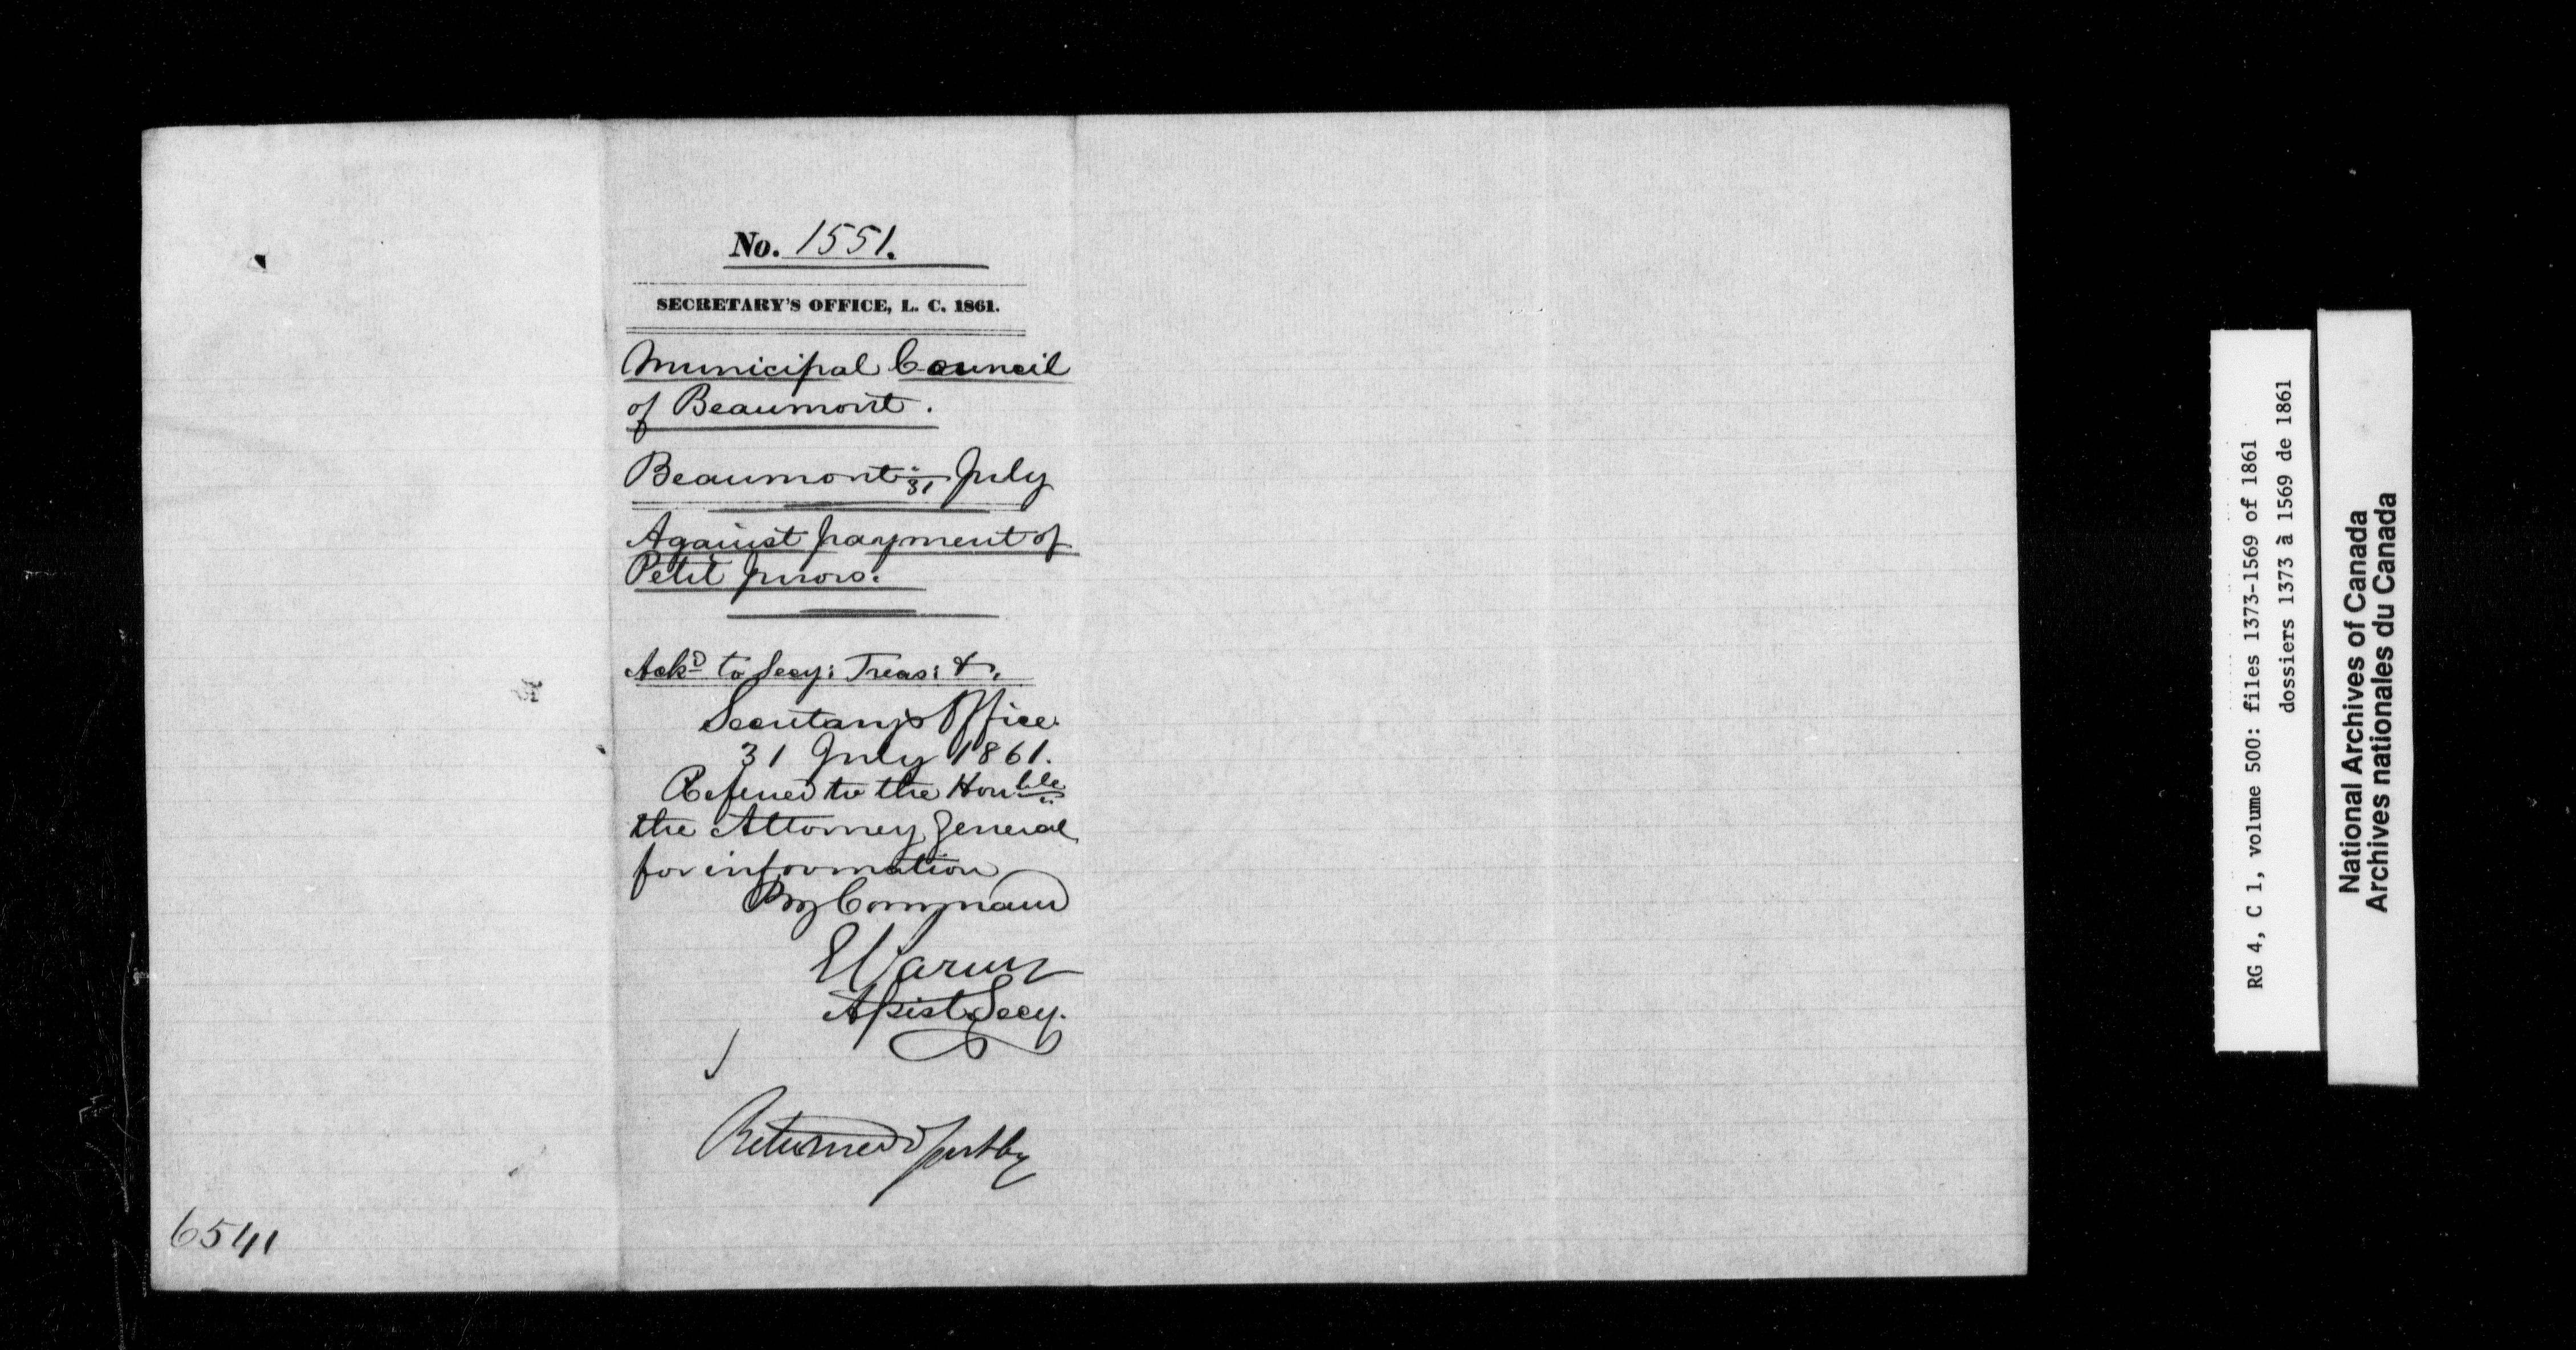 No. 1551.
SECRETARY'S OFFICE, L. C. 1861.
Municipal Council
of Beaumont.
Beaumont 31 July
Against payment of
Petit Jurors.
Ackd to Secy: Treas: &.
Secretary's Office
31 July 1861.
Referred to the Honble
the Attorney General
for information
By Command
Assist Secy.
Returned
6541
RG 4, C 1, volume 500: files 1373-1569 of 1861
dossiers 1373 à 1569 de 1861
National Archives of Canada
Archives nationales du Canada